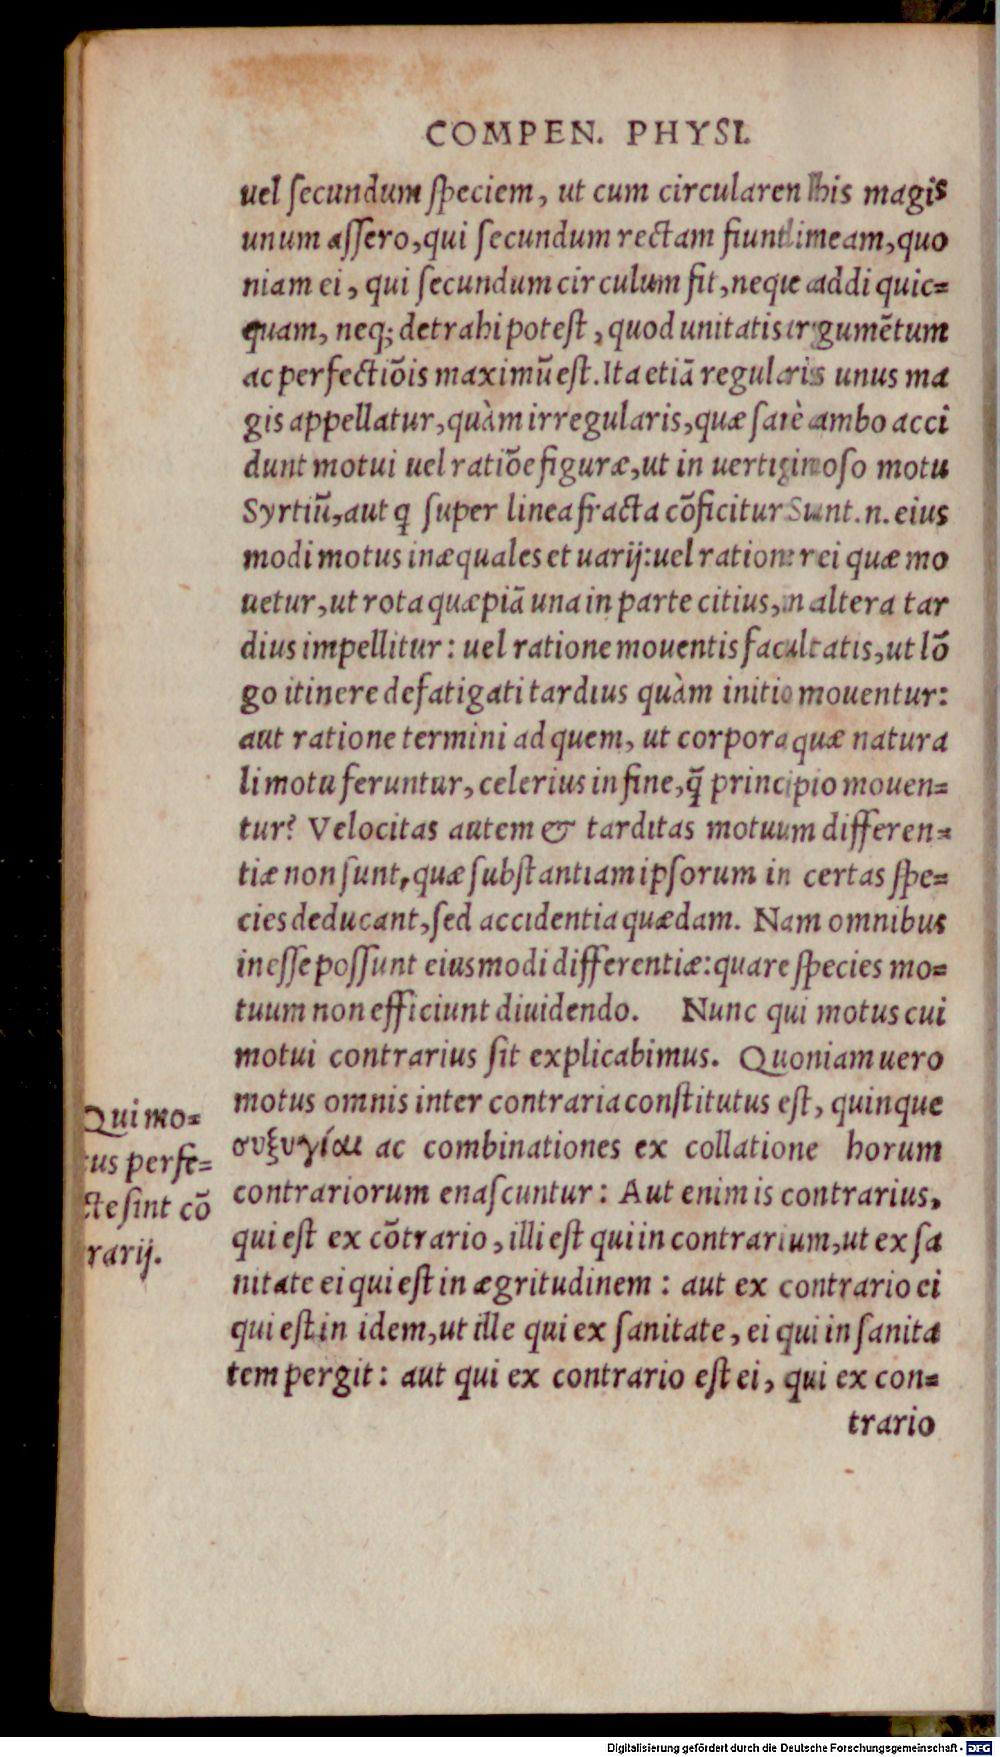 COMPEN. PHYSI.
uel ſecundum ſpeciem, ut cum circularem his magis
unum aſſero, qui ſecundum rectam fiunt lineam, quo
niam ei, qui ſecundum circulum fit, neque addi quic=
quam, neq; detrahi poteſt, quod unitatis argumẽtum
ac perfectiõis maximũ eſt. Ita etiã regularis unus ma
gis appellatur, quàm irregularis, quæ ſanè ambo acci
dunt motui uel ratiõe figuræ, ut in uertiginoso motu
Syrtiũ, aut q̃ ſuper linea fracta cõficitur Sunt. n. eius
modi motus inæquales et uarij: uel ratione rei quæ mo
uetur, ut rota quæpiã una in parte citius, in altera tar
dius impellitur: uel ratione mouentis facultatis, ut lõ
go itinere defatigati tardius quàm initio mouentur:
aut ratione termini ad quem, ut corpora quæ natura
li motu feruntur, celerius in fine, q̃ principio mouen=
tur? Velocitas autem & tarditas motuum differen=
tiæ non ſunt, quæ ſubſtantiam ipſorum in certas ſpe=
cies deducant, ſed accidentia quædam. Nam omnibus
ineſſe poſſunt eiusmodi differentiæ: quare ſpecies mo=
tuum non efficiunt diuidendo. Nunc qui motus cui
motui contrarius ſit explicabimus. Quoniam uero
motus omnis inter contraria conſtitutus eſt, quinque
συξυγίαι ac combinationes ex collatione horum
contrariorum enaſcuntur: Aut enim is contrarius,
qui eſt ex cõtrario, illi eſt qui in contrarium, ut ex ſa
nitate ei qui eſt in ægritudinem: aut ex contrario ei
qui eſt in idem, ut ille qui ex ſanitate, ei qui in ſanita
tem pergit: aut qui ex contrario eſt ei, qui ex con=
trario
Qui mo=
tus perfe=
cte ſint cõ
rarij.
Digitalisierung gefördert durch die Deutsche Forschungsgemeinschaft - DFG